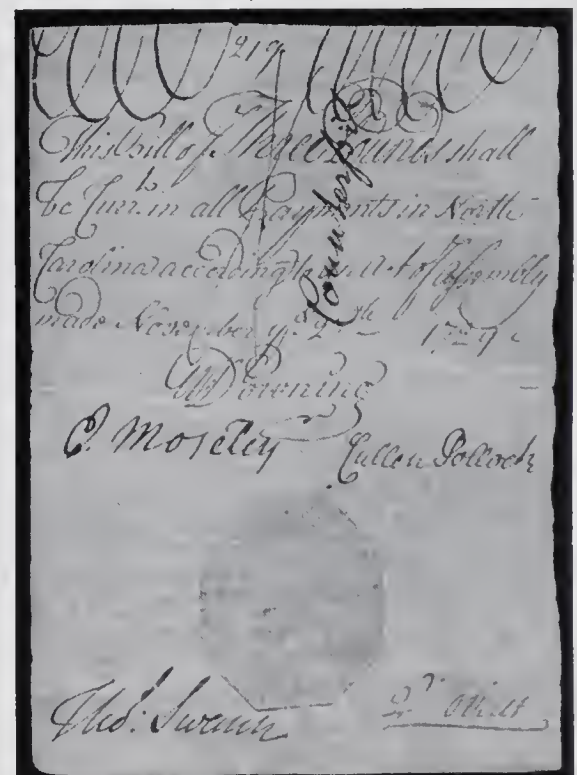 219
This bill of Three Pounds shall
be Curr.t in all Payments in North
Carolina according to an Act of Assembly
made November ye 27th 1729
Counterfeit
W Downing
E. Moseley Cullen Pollock
Tho.s Swann